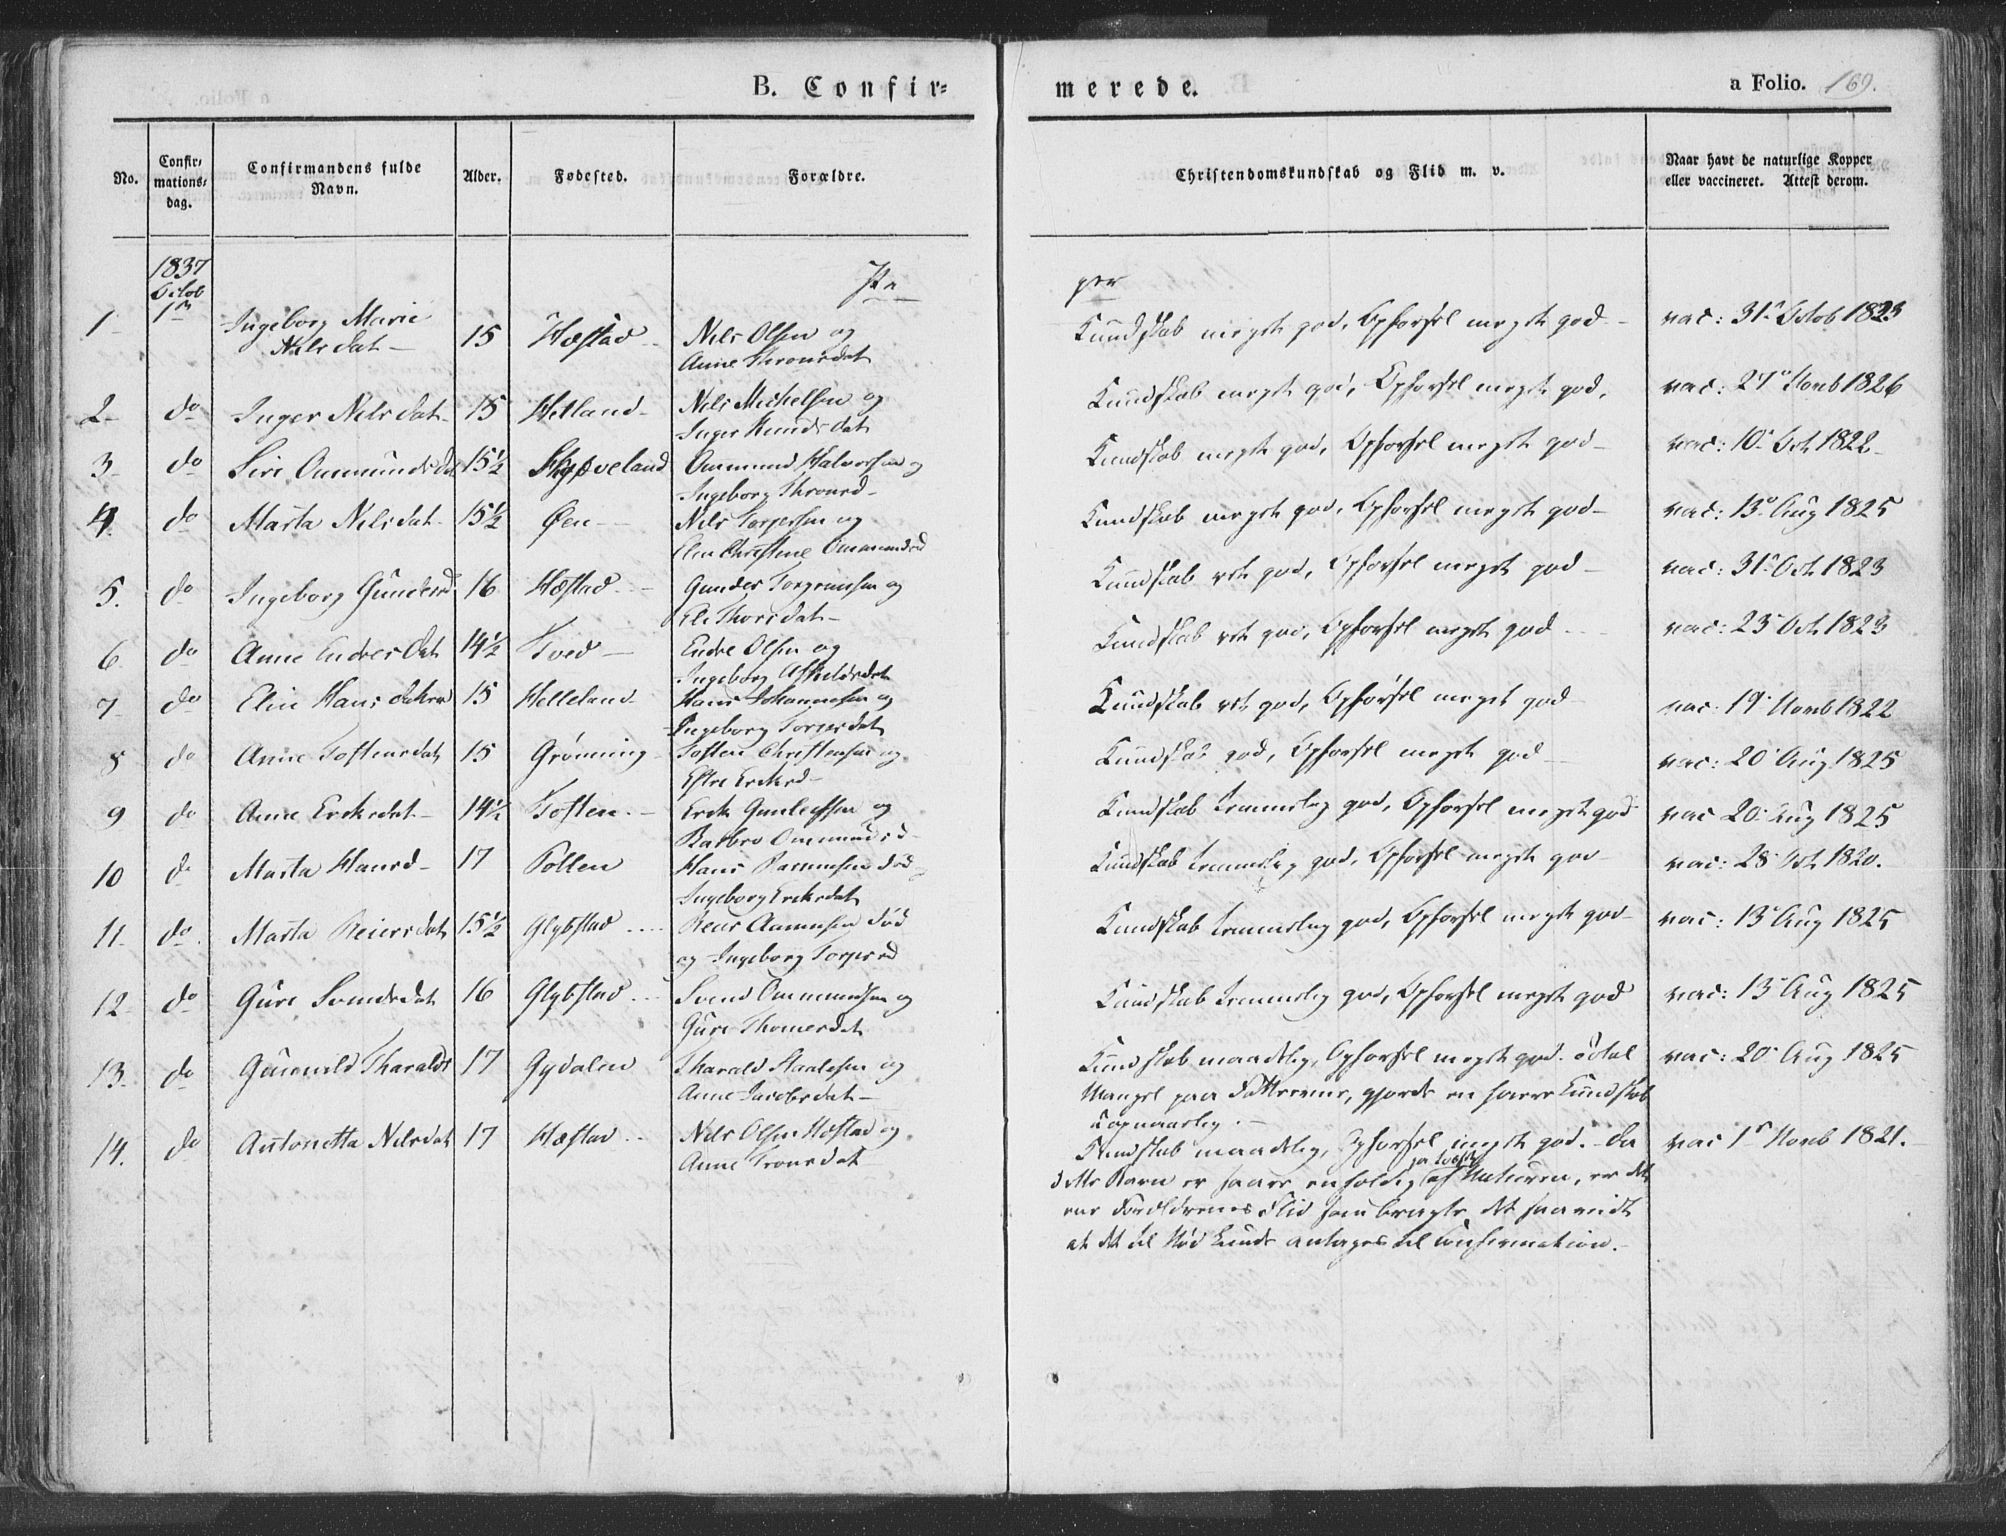 B. Confir-
merede.
a Folio. 169.
No.
Confir-
mations-
dag.
Confirmandens fulde
Navn.
Alder.
Fødested.
Forældre.
Christendomskundskab og Flid m. v.
Naar havt de naturlige Kopper
eller vaccineret. Attest derom.
1837
Octob
1
Pi
ger
1 Ingeborg Marie
Nilsdat 15 Hæstad Nils Olsen og
Anne Thronsdat
Kundskab meget god, Opførsel meget god vac: 31 Octob 1823
2 do Inger Nilsdat 15 Hetland Nils Michelsen og
Inger Knudsdat
Kundskab meget god, Opførsel meget god, vac: 27 Novb 1826
3 do Siri Ommundsdat 15½ Skjæveland Ommund Halvorsen og
Ingeborg Thronsd
Kundskab meget god, Opførsel meget god vac: 10 Oct 1822
4 do Marta Nilsdat 15½ Øen Nils Torjersen og
Elen Christine Ommundsd
Kundskab meget god, Opførsel meget god vac: 13 Aug 1825
5. do Ingeborg Gundersd 16 Hæstad Gunder Torgrimsen og
Eli Thorsdat
Kundskab ret god, Opførsel meget god vac: 31 Oct 1823
6 do Anne Endresdat 14½ Tved Endre Olsen og
Ingeborg Askildsdat
Kundskab ret god, Opførsel meget god vac: 23 Oct 1823
7 do Eline Hansdatter 15 Helleland Hans Johannesen og
Ingeborg Torjersdat
Kundskab ret god, Opførsel meget god vac: 19 Novb 1822
8 do Anne Tostensdat 15 Grønning Tosten Christensen og
Estri Ericksd
Kundskab god, Opførsel meget god vac: 20 Aug 1825
9 do Anne Ericksdat 14½ Tosten Erick Gunlefsen og
Barbro Ommundsd
Kundskab temmelig god, Opførsel meget god vac 20 Aug 1825
10 do Marta Hansd 17 Potten Hans Rasmusen død
Ingeborg Ericksdat
Kundskab temmelig god, Opførsel meget god vac: 28 Oct 1820.
11 do Marta Reiersdat 15½ Glybstad Reier Aamunsen død
og Ingeborg Torjersd
Kundskab temmelig god, Opførsel meget god vac: 13 Aug 1825
12 do Guri Svendsdat 16 Glybstad Svend Ommundsen og
Guri Thomesdat
Kundskab temmelig god, Opførsel meget god vac: 13 Aug 1825
13 do Gunnild Tharalds 17 Gydalen Tharald Staalesen og
Anne Jacobsdat
Kundskab maadelig, Opførsel meget god. Total vac: 20 Aug 1825
Mangel paa Fatteevne, gjorde en større Kundskab
uopnaaelig.
14. do Antonetta Nilsdat 17 Hæstad Nils Olsen Hæstad og
Anne Tronsdat
Kundskab maadelig, Opførsel meget god. Da vac 1 Novb 1821.
dette Barn er saare enfoldig af Naturen, er det
ene Forældrenes Flid som bragte det saavidt
at det til Nød kunde antages til Confirmation.